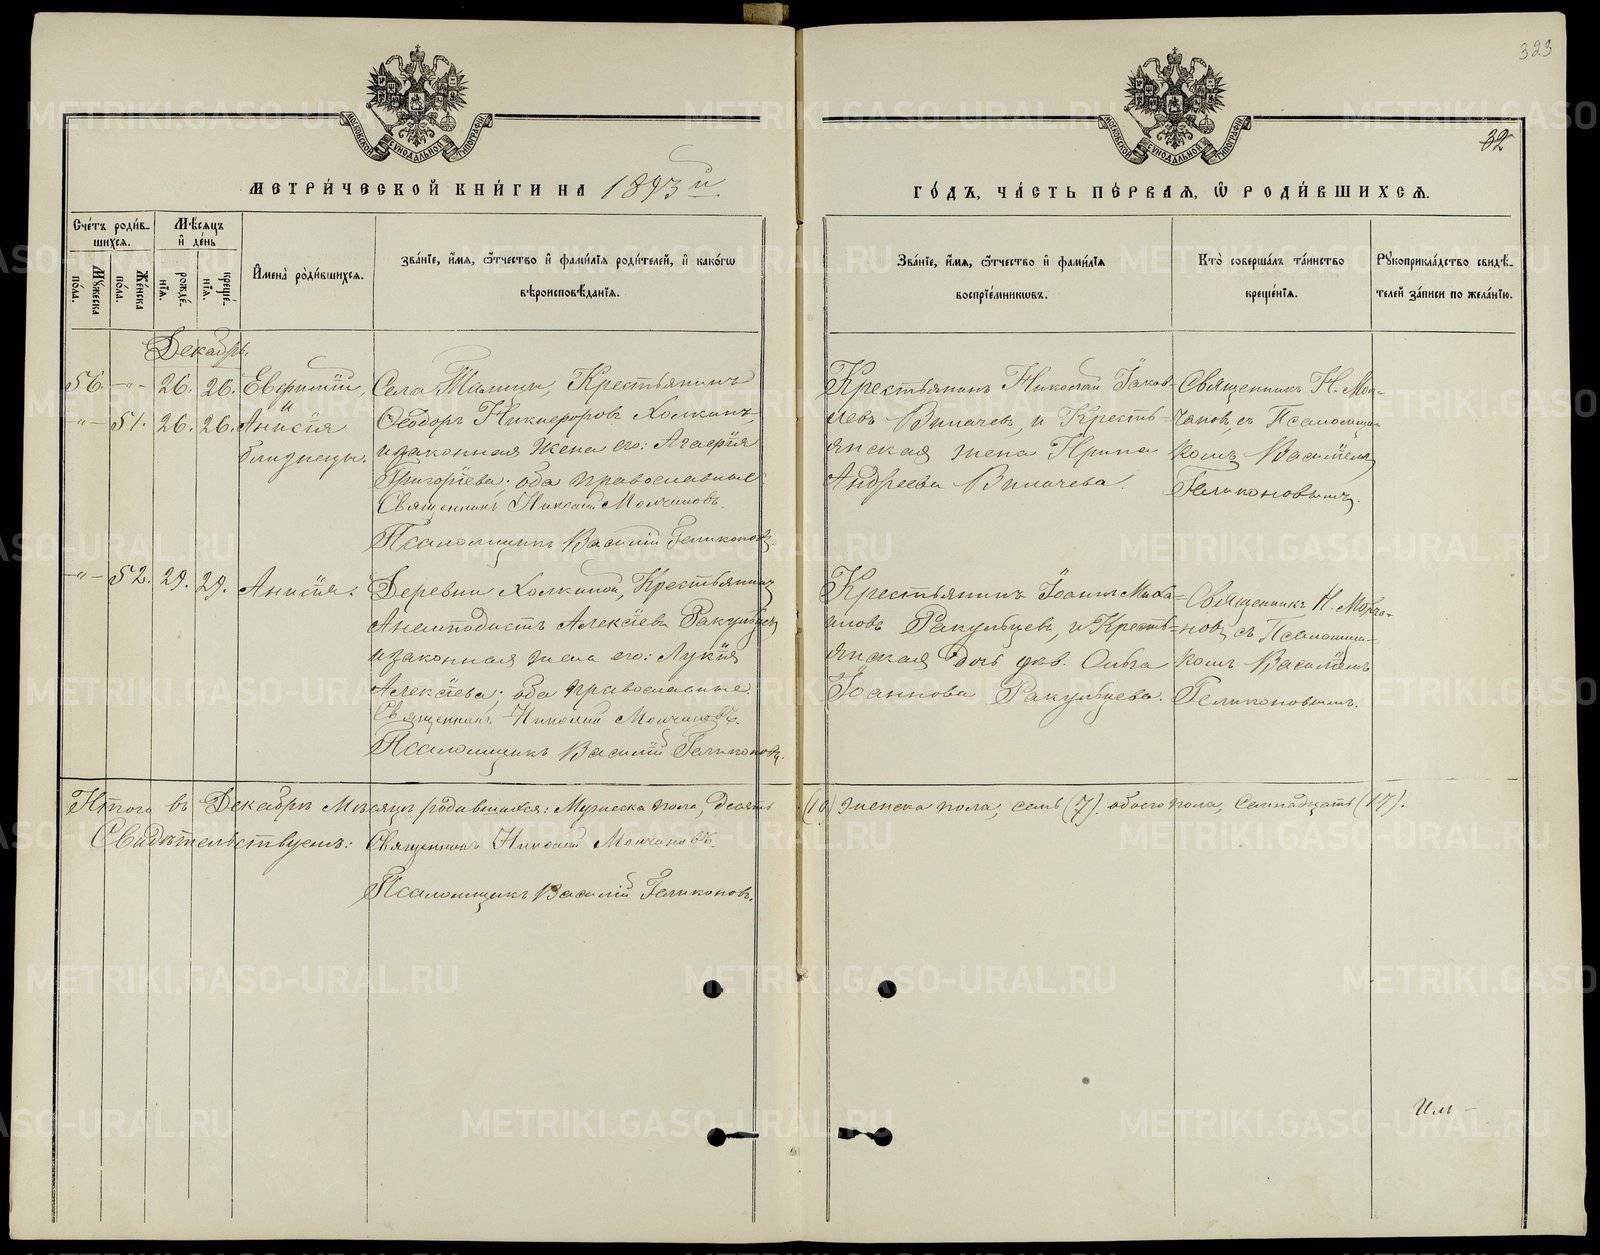 323
32
МОСКОВСКОЙ СѴНОДАЛЬНОЙ ТИПОГРАФІИ
МОСКОВСКОЙ СѴНОДАЛЬНОЙ ТИПОГРАФІИ
МЕТРИ́ЧЕСКОЙ КНИ́ГИ НА 1893й
ГО́ДЪ, ЧА́СТЬ ПЕ́РВАЯ, Ѡ РОДИ́ВШИХСѦ.
Сче́тъ роди́в-
шихся.
Мѣ́сяцъ
и де́нь
Мꙋжеска пола.
Же́нска по́ла.
рожде́нїѧ.
креще́нїѧ.
Имена̀ роди́вшихся.
Зва́нїе, и́мѧ, ѻ́тчество и фами́лїѧ роди́телей, и како́гѡ
вѣроисповѣ́данїѧ.
Зва́нїе, и́мѧ, ѻ́тчество и фами́лїѧ
воспрїе́мниковъ.
Кто̀ соверша́лъ та́инство
креще́нїѧ.
Рꙋкоприкла́дство свидѣ́-
телей за́писи по жела́нїю.
Декабрь.
56. -„- 26. 26. Евфимій,
и
-„- 51. 26. 26. Анисія
близнецы.
Села Талицы, Крестьянинъ
Ѳеодоръ Никифоровъ Холкинъ,
и законная жена его: Агафія
Григоріева. оба православные
Священникъ Николай Молчановъ.
Псаломщикъ Василій Геликоновъ.
Крестьянинъ Николай Іаков-
левъ Вилачевъ, и Кресть-
янская жена Ирина
Андреева Вилачева.
Священникъ Н. Мол-
чановъ, съ Псаломщи-
комъ Василіемъ
Геликоновымъ.
-„- 52. 29. 29. Анисія.
Деревни Холкиной, Крестьянинъ
Анемподистъ Алексіевъ Ракульцевъ
и законная жена его: Лукія
Алексіева; оба православные.
Священникъ Николай Молчановъ.
Псаломщикъ Василій Геликоновъ.
Крестьянинъ Іоаннъ Миха-
иловъ Ракульцевъ, и Кресть-
янская дочь дѣв. Ольга
Іоаннова Ракульцева.
Священникъ Н. Молча-
новъ, съ Псаломщи-
комъ Василіемъ
Геликоновымъ.
Итого въ Декабрѣ Мѣсяцѣ родившихся: Мужеска пола, десять (10) женска пола, семь (7). обоего пола, семнадцать (17).
Свидѣтельствуемъ: Священникъ Николай Молчановъ.
Псаломщикъ Василій Геликоновъ.
METRIKI.GASO-URAL.RU